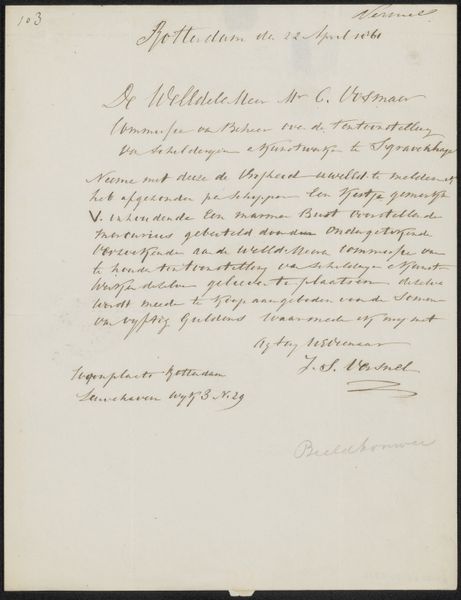 103
Rotterdam de 22 April 1861
De WelEdele Heer Mr C. Vosmaer
Commissie van Beheer over de Tentoonstelling
van Schilderyen & Kunstwerken te S'gravenhage
Neeme met deze de Vryheid UWelEd te melden
heb afgezonden per Schipper Een Kistje gemerkt
V. inhoudende Een marmer Bust voorstellende
Mercurius gebeiteld door den Ondergetekende
Verzoekende aan de WelEdele Heeren Commissie van
te houden tentoonstelling van Schilderyen & Kunst
werken dezelven gelieven te plaatsen dezelve
wordt mede te Koop aangeboden voor de Somma
van vyftig Guldens waarmede ik my met
Agting UEDienaar
J. S. Versnel
Woonplaats Rotterdam
Leuvehaven Wyk 3 N. 29
Beeldhouwer